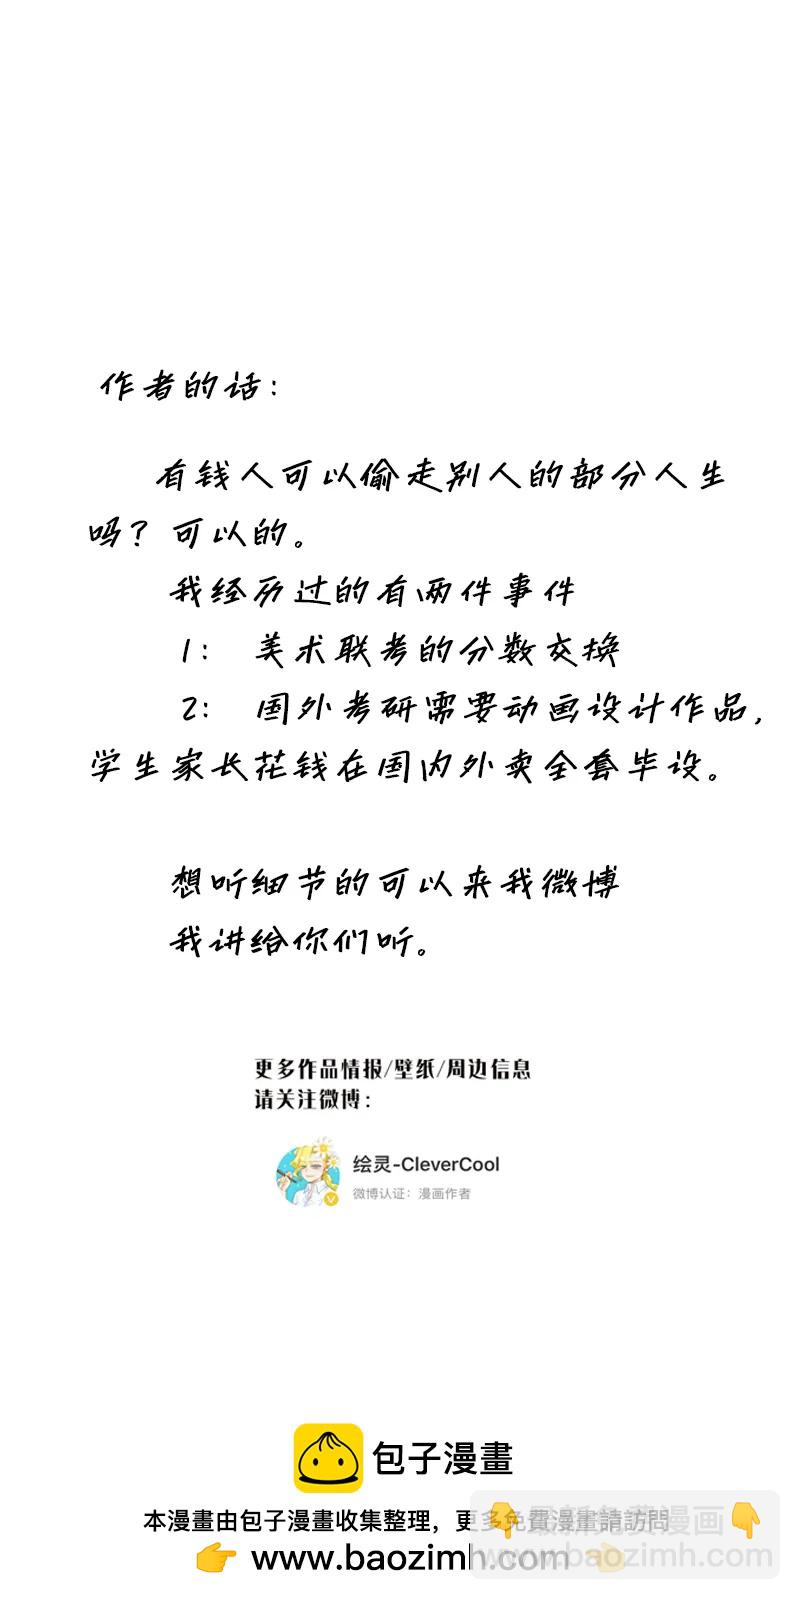 作者的话：
有钱人可以偷走别人的部分人生
吗？可以的。
我经历过的有两件事件
1： 美术联考的分数交换
2： 国外考研需要动画设计作品，
学生家长花钱在国内外卖全套毕设。
想听细节的可以来我微博
我讲给你们听。
更多作品情报/壁纸/周边信息
请关注微博：
绘灵-CleverCool
微博认证：漫画作者
包子漫畫
本漫畫由包子漫畫收集整理，更多免費漫畫請訪問
👉 www.baozimh.com 👈
👇最新免費漫画👇
baozimh.com